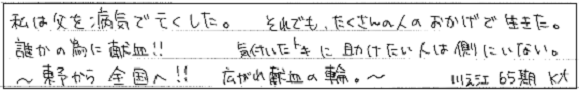 私は父を病気で亡くした。 それでも、たくさんの人のおかげで生きた。
誰かの為に献血!! 気付いたトキに助けたい人は側にいない。
～東予から全国へ!! 広がれ献血の輪。～ 川之江 65期 K.K